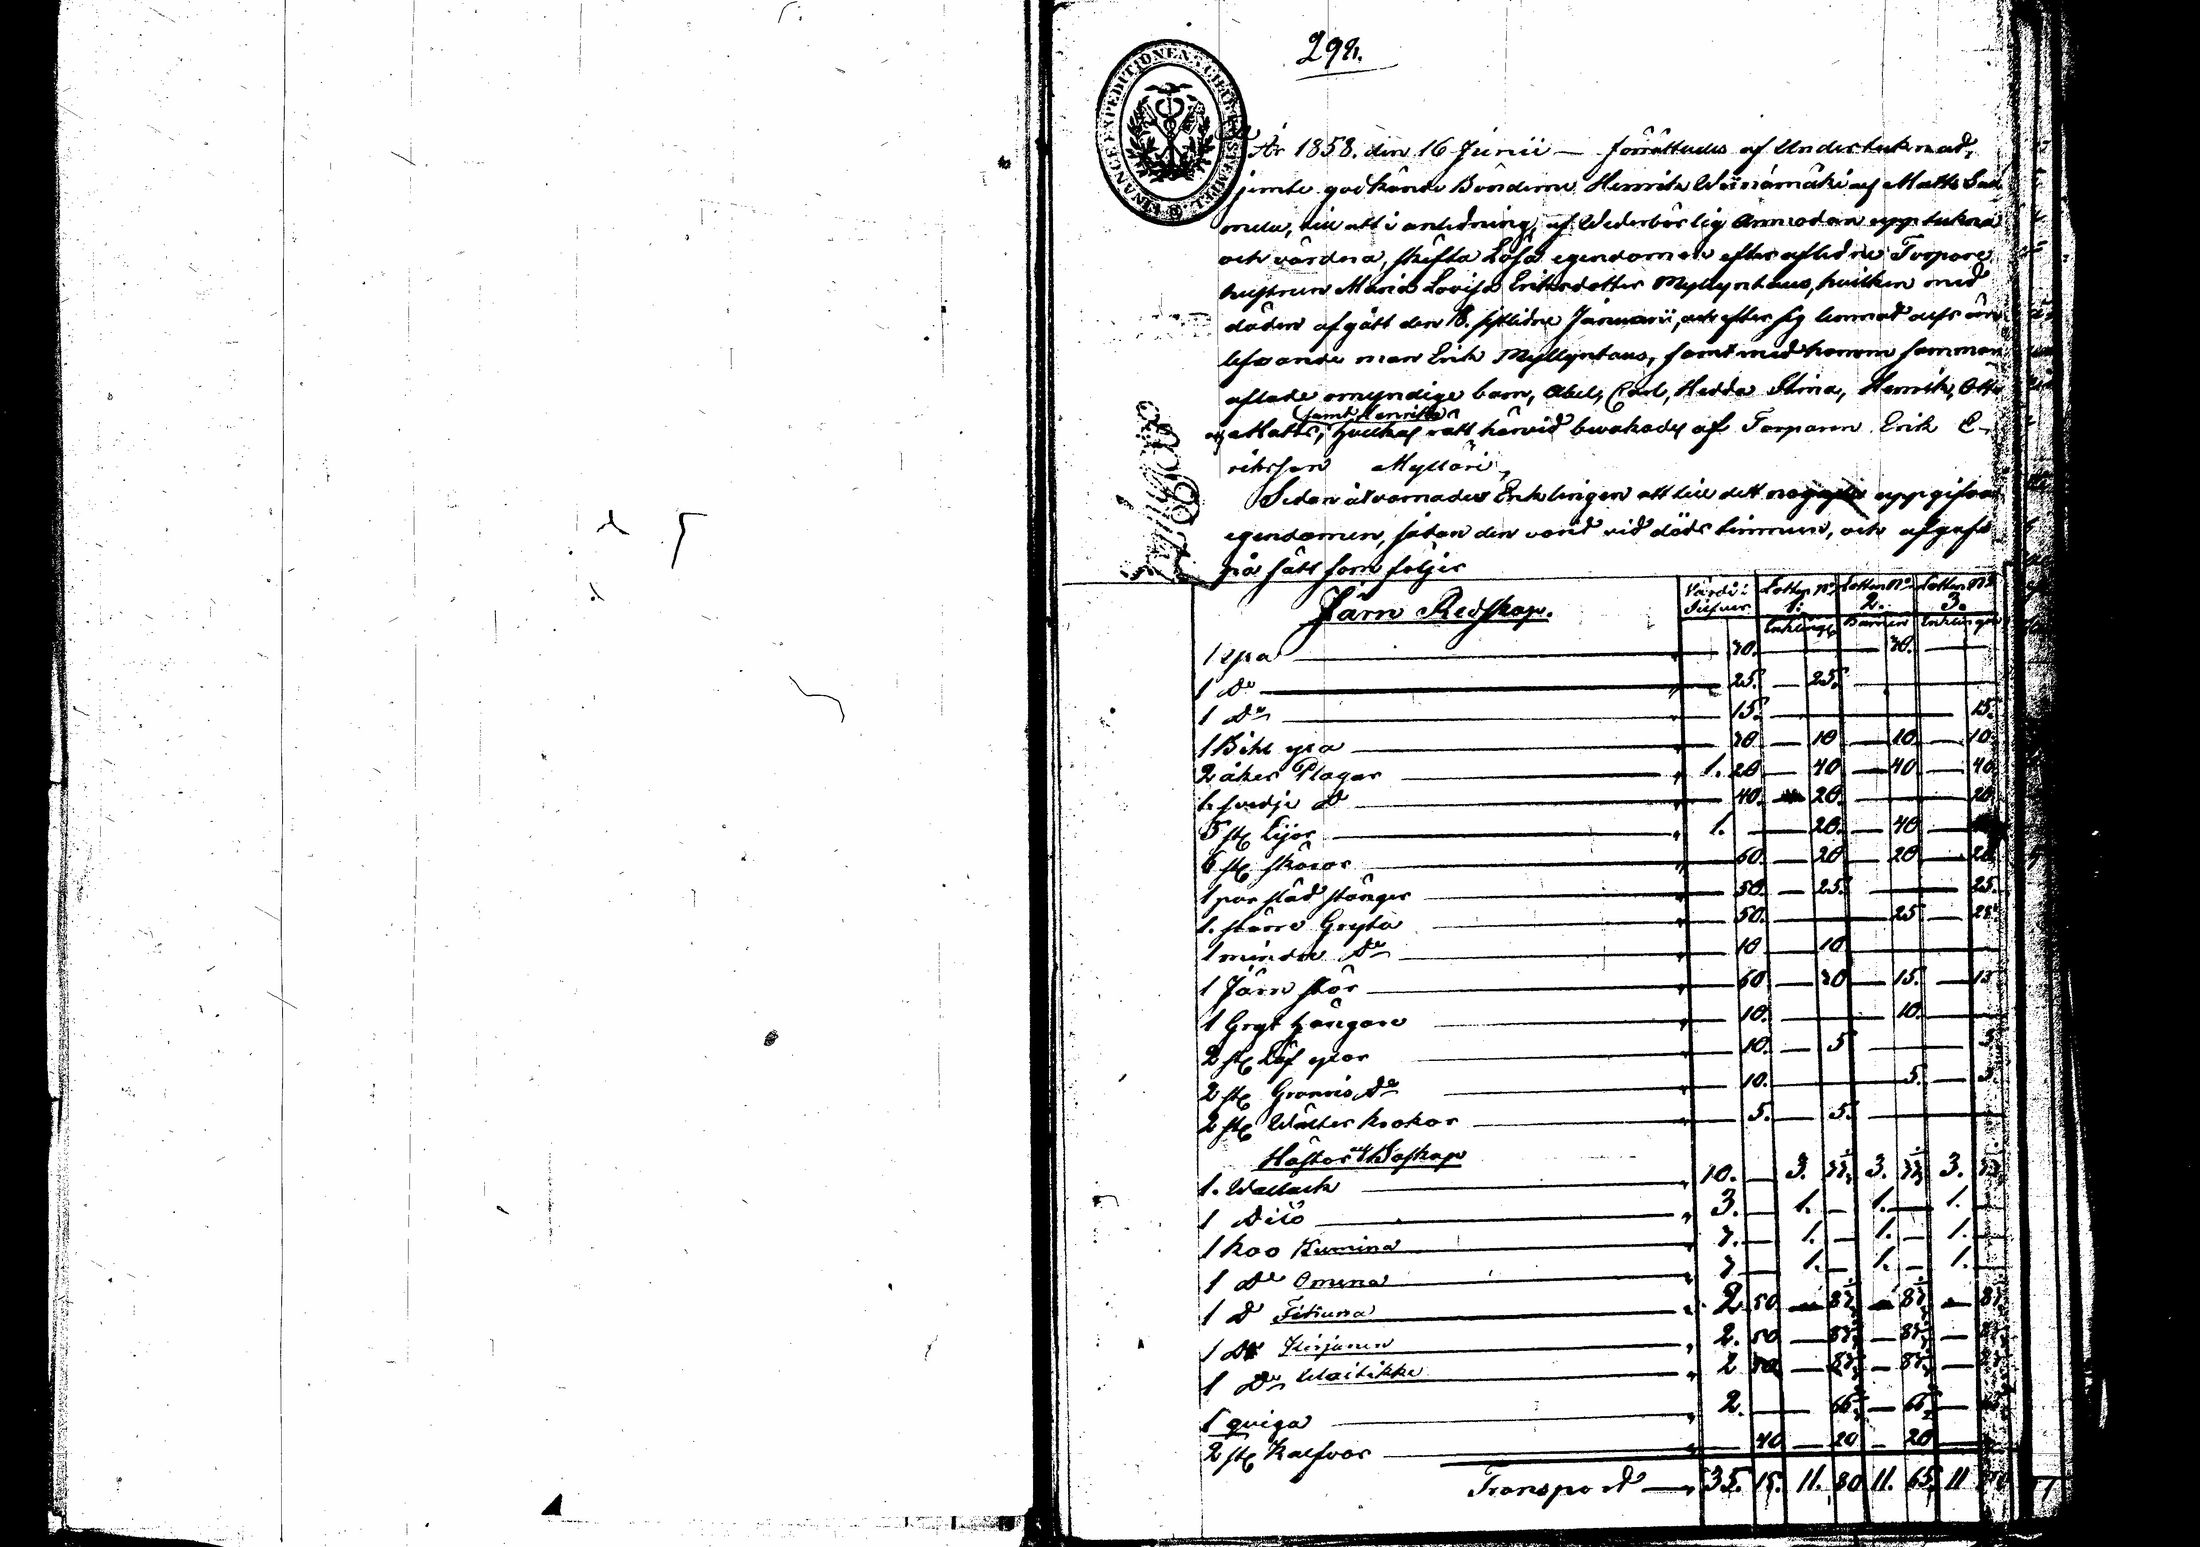 298.
FINANCE EXPEDITIONEN
År 1858. den 16 Junii — förrättades af Underteknad,
jemte god kände Bönderne Henrik Wiinamäki af Matts
mela, till att i anledning, af Wederbörlig Anmodan uppteckna
och värdera, skifta Lösa egendomen efter aflidne Torpare
hustrun Maria Lovisa Eriksdotter Myllyntaus, hvilken med
döden afgått den 18. sistlidne Januarii, och efter sig lemnad dess än
lefvande man Erik Myllyntaus, samt med honom samman
aflade omyndige barn, Abel, Carl, Hedda Stina, Henrik, Otto
samt Henrika
Matts, hvilkas rätt härvid bevakades af Torparen Erik E-
riksson Mylläri,
Sedan åtvarnades Enklingen att till det noga uppgifva
egendomen, sådan den varit vid döds timmen, och afgafs
på sätt som följer
Järn Redskap.
Värde i Silfver
Lotten No 1. Lotten No 2. Lotten No 3.
Enklings Barnen Enklingen
1 yxa — 30. — 30. —
1 Do — 25. — 25. —
1 Do — 15. — 15.
1 Bihl yxa — 30 — 10 — 10 — 10
2 åker Plogar — 1. 20 — 40 — 40 — 40
1. svedje Do — 40. — 20. — 20
5 st Lijor — 1. — 20. — 40 —
6 st skäror — 60. — 20 — 20 — 20
1 par städ stänger — 50. — 25. — 25.
1. större Gryta — 50. — 25 — 25
1 mindre Do — 10 — 10 —
1 Järn stör — 60 — 30 — 15. — 15
1 Gryt hängare — 10. — 10. —
2 st Löf yxor — 10. — 5 — 5
2 st Do — 10. — 5. — 5.
2 st krokar — 5. — 5. —
Hästar och Boskap
1. Wallack — 10. — 3. 33⅓ 3. 33⅓ 3. 33⅓
1 Dito — 3. — 1. — 1. — 1. —
1 koo Kumina — 3. — 1. — 1. — 1.
1 Do Omena — 3 — 1. — 1. — 1.
1 Do — 2. 50 — 83⅓ — 83⅓ — 83⅓
1 Do Kirjanen — 2. 50 — 83⅓ — 83⅓ — 83⅓
1 Do Waitikki — 2 50 — 83⅓ — 83⅓ — 83⅓
1 qviga — 2. — 66⅔ — 66⅔ —
2 st Kalfvar — 40 — 20 — 20 —
Transport — 35. 15. 11. 80 11. 65. 11